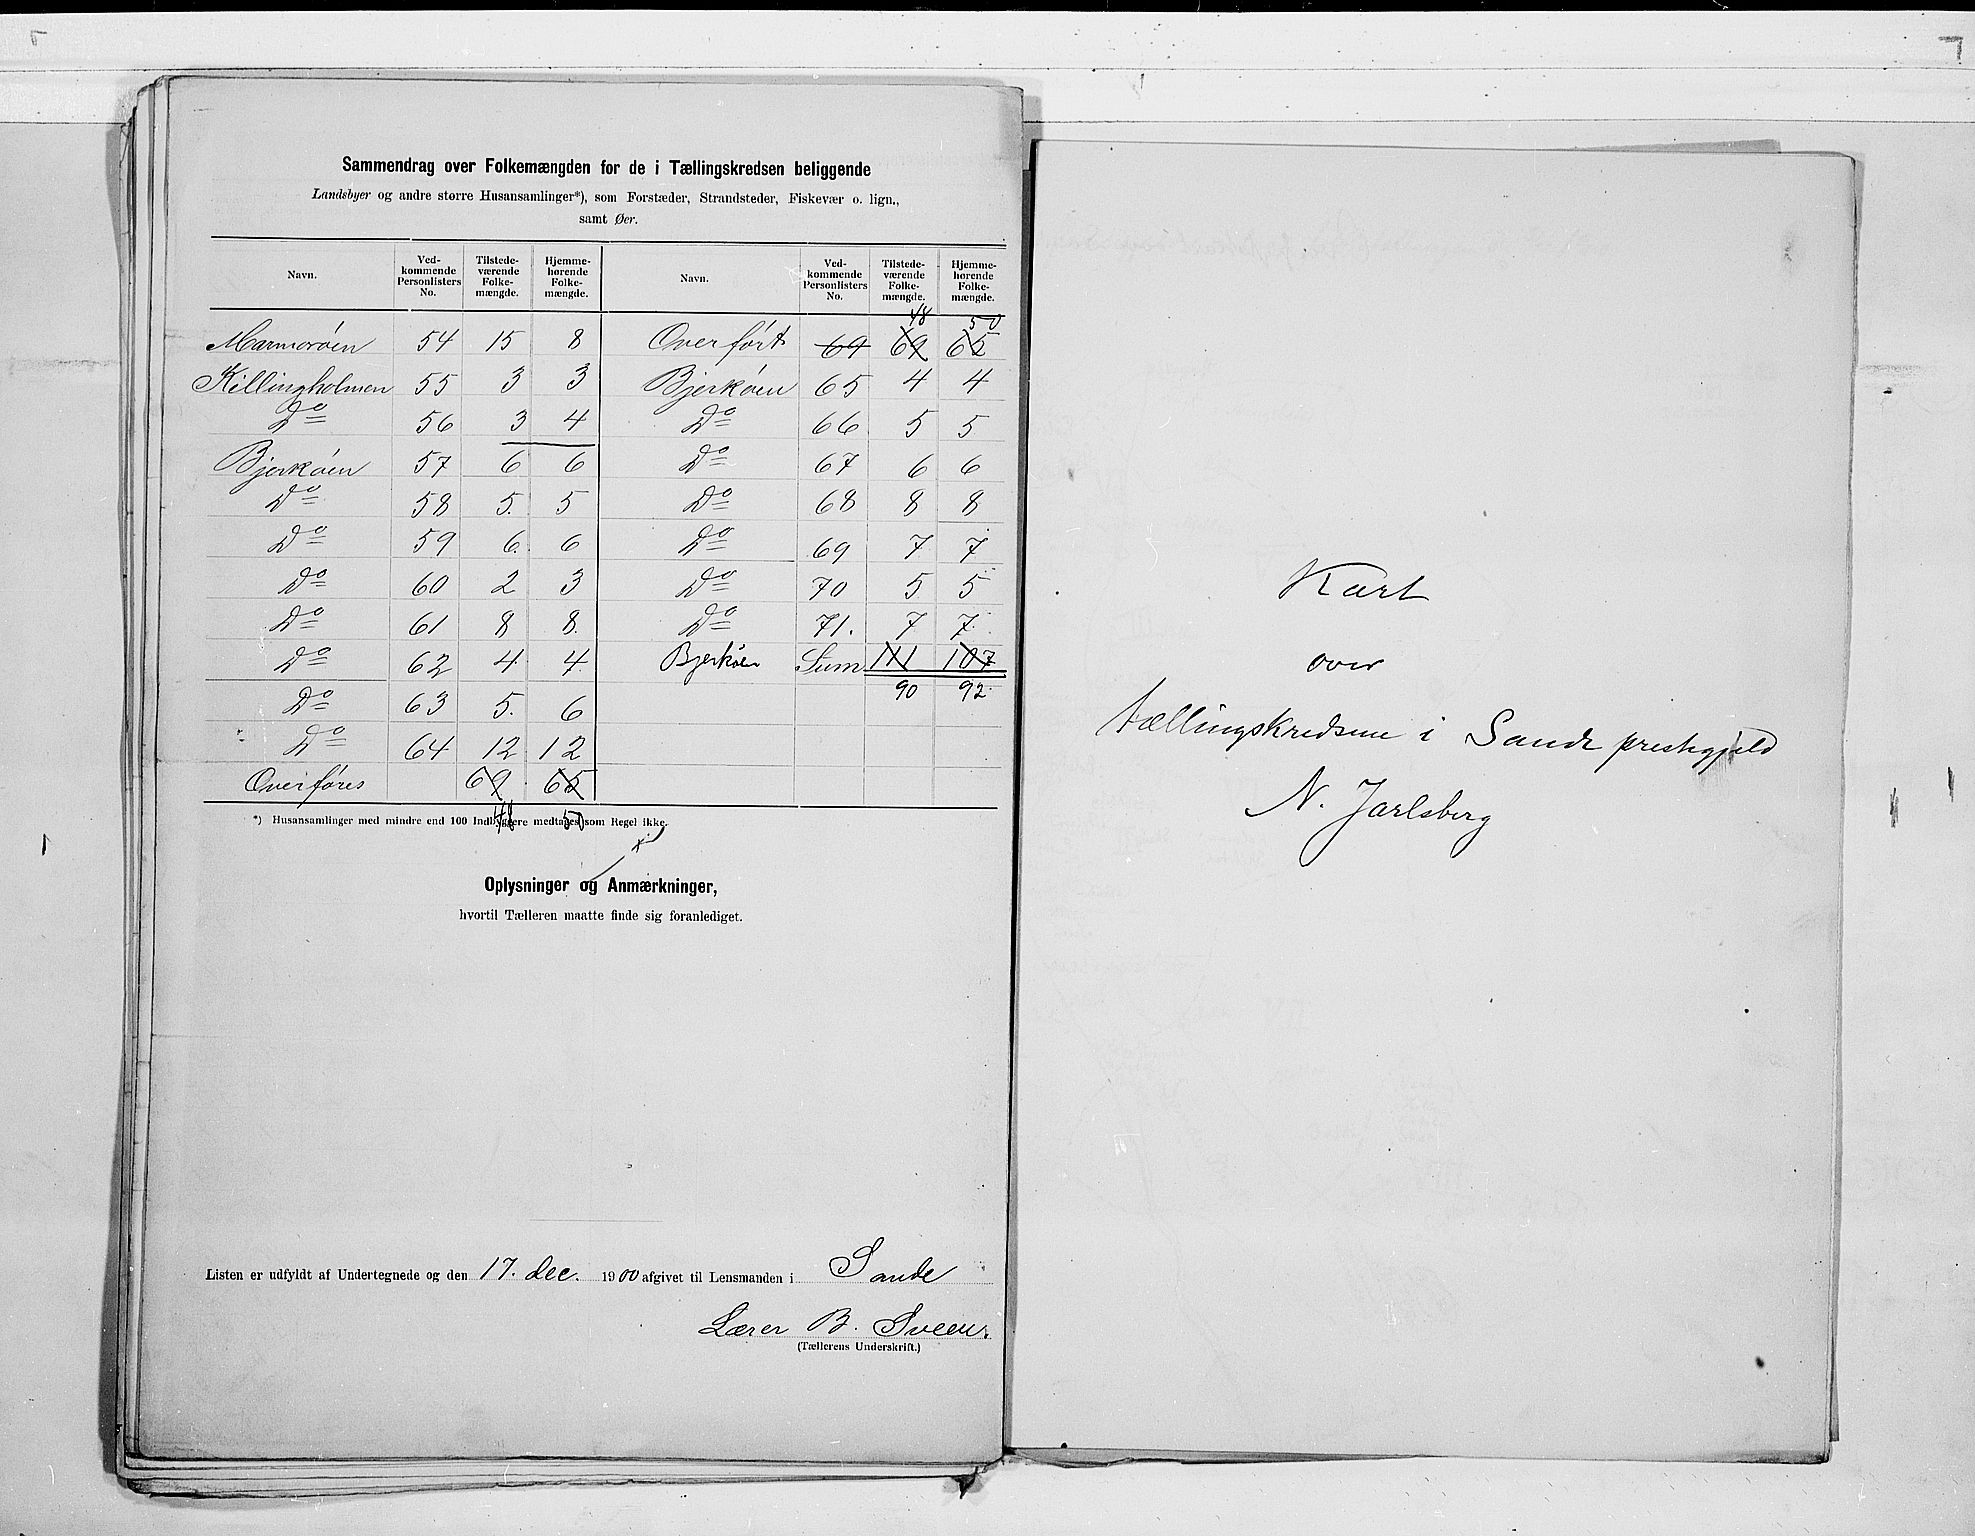 Sammendrag over Folkemængden for de i Tællingskredsen beliggende
Landsbyer og andre større Husansamlinger*), som Forstæder, Strandsteder, Fiskevær o. lign.,
samt Øer.
Navn. Ved-kommende Personlisters No. Tilstede-værende Folke-mængde. Hjemme-hørende Folke-mængde. Navn. Ved-kommende Personlisters No. Tilstede-værende Folke-mængde. Hjemme-hørende Folke-mængde.
48 50
Marmorøen 54 15 8 Overført 69 69 65
Killingholmen 55 3 3 Bjerkøen 65 4 4
Do 56 3 4 Do 66 5 5
Bjerkøen 57 6 6 Do 67 6 6
Do 58 5. 5 Do 68 8 8
Do 59 6. 6 Do 69 7 7
Do 60 2 3 Do 70 5 5
Do 61 8 8. Do 71. 7 7.
Do 62 4. 4. Bjerkøen Sum 111 107
Do 63 5. 6 90 92.
Do 64 12 12
Overføres 69. 65
48 50
*) Husansamlinger med mindre end 100 Indbyggere medtages som Regel ikke.
x)
Oplysninger og Anmærkninger,
hvortil Tælleren maatte finde sig foranlediget.
Listen er udfyldt af Undertegnede og den 17. dec. 1900 afgivet til Lensmanden i Sande
Lærer B. Sveen.
(Tællerens Underskrift.)
Kart
over
tællingskredsene i Sande prestegjeld
N. Jarlsberg